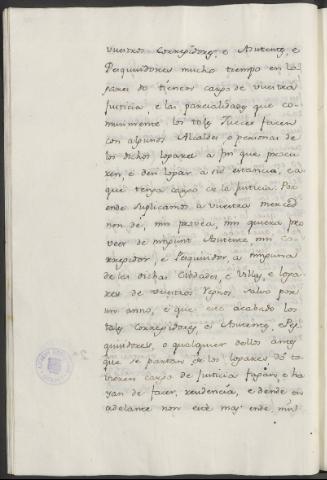 vuestros Corregidores, e Asistentes, e
Pesquiridores mucho tiempo en los
logares do tienen cargo de vuestra
Justicia, e las parcialidades que co-
munmente los tales Jueces facen
con algunos Alcaldes, o personas de
los dichos logares a fin que procu-
ren, e den logar a su estancia, e a
que tenga cargo de la Justicia. Por
ende suplicamos a vuestra merced
non dé, nin provéa, nin quiera pro
veer de ningunt Asistente nin Co-
rregidor, e Pesquiridor, a ninguna
de las dichas Cibdades, e Villas, e loga-
res de vuestros Regnos, salvo por
un anno, e que ese acabado los
tales Corregidores, e Asistentes, e Pes-
quiridores, o qualquier dellos antes
que se partan de los logares do to-
vieren cargo de Justicia fagan, e ha-
yan de facer, residencia, e dende en
adelante non esté mas ende, nin